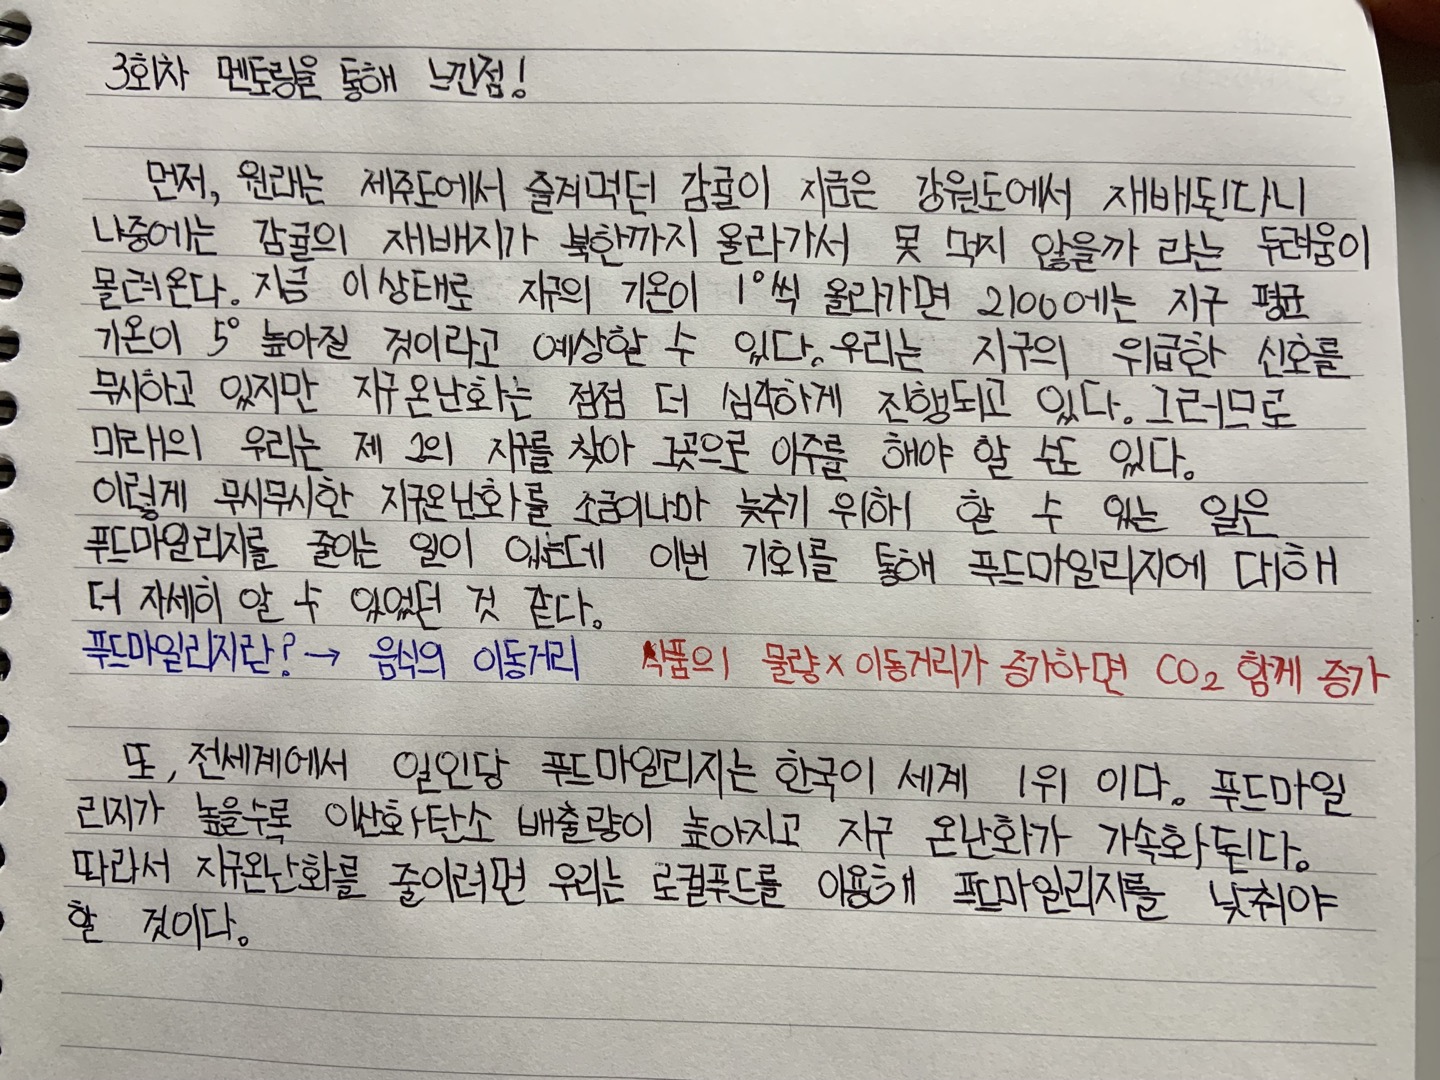 3회차 멘토링을 통해 느낀점!
먼저, 원래는 제주도에서 즐겨먹던 감귤이 지금은 강원도에서 재배된다니
나중에는 감귤의 재배지가 북한까지 올라가서 못 먹지 않을까 라는 두려움이
몰려온다. 지금 이상태로 지구의 기온이 1°씩 올라가면 2100에는 지구 평균
기온이 5° 높아질 것이라고 예상할 수 있다. 우리는 지구의 위급한 신호를
무시하고 있지만 지구온난화는 점점 더 심각하게 진행되고 있다. 그러므로
미래의 우리는 제 2의 지구를 찾아 그곳으로 이주를 해야 할 수도 있다.
이렇게 무시무시한 지구온난화를 조금이나마 늦추기 위해 할 수 있는 일은
푸드마일리지를 줄이는 일이 있는데 이번 기회를 통해 푸드마일리지에 대해
더 자세히 알 수 있었던 것 같다.
푸드마일리지란? → 음식의 이동거리 식품의 물량 × 이동거리가 증가하면 CO₂ 함께 증가
또, 전세계에서 일인당 푸드마일리지는 한국이 세계 1위 이다. 푸드마일
리지가 높을수록 이산화탄소 배출량이 높아지고 지구 온난화가 가속화된다.
따라서 지구온난화를 줄이려면 우리는 로컬푸드를 이용해 푸드마일리지를 낮춰야
할 것이다.